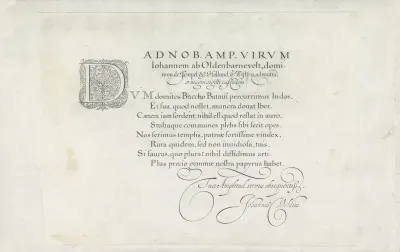 AD NOB. AMP. VIRVM
Iohannem ab Oldenbarnevelt, domi-
num de Tempel &c Holland. &
DVM domitos Baccho Batavi percurrimus Indos,
Et sua, quod nosset, munera donat Iber.
Cætera iam sordent: nihil est quod restat in auro,
Stultaque communes plebs sibi fecit opes.
Nos ferimus templis, patriæ fortissime vindex,
Rara quidem, sed non invidiosa, tuis.
Si faucas, quo plura nihil diffidimus arti.
Plus precio gemmæ nostra papyrus habet.